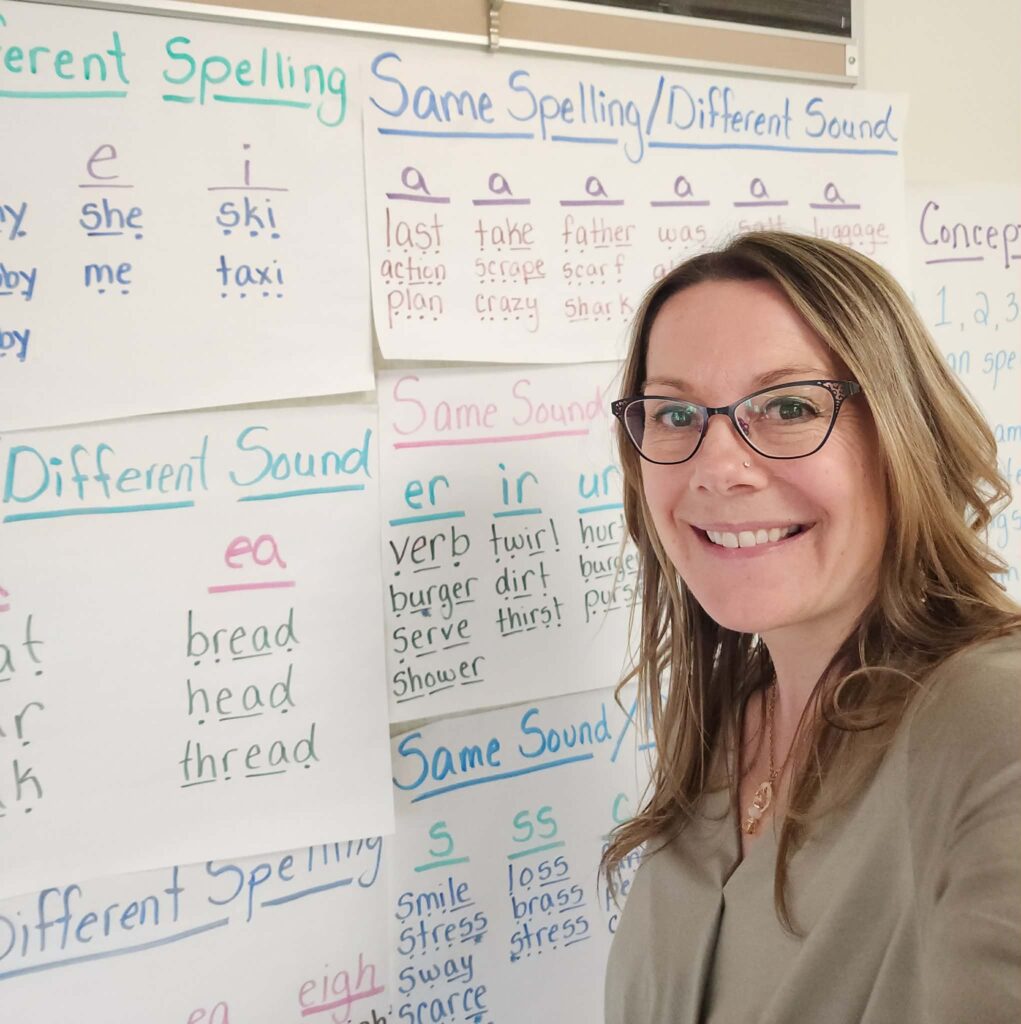 Spelling
e i
she ski
me taxi
by
by
Same Spelling/Different Sound
a a a a a a
last take father was salt luggage
action scrape scarf
plan crazy shark
Concept
1, 2, 3
spe
Different Sound
ea
bread
head
thread
Same Sound
er ir ur
verb twir! hurt
burger dirt burger
serve thirst purse
shower
Same Sound/
s ss c
smile loss
stress brass
sway stress
scarce
Different Spelling
ea eigh